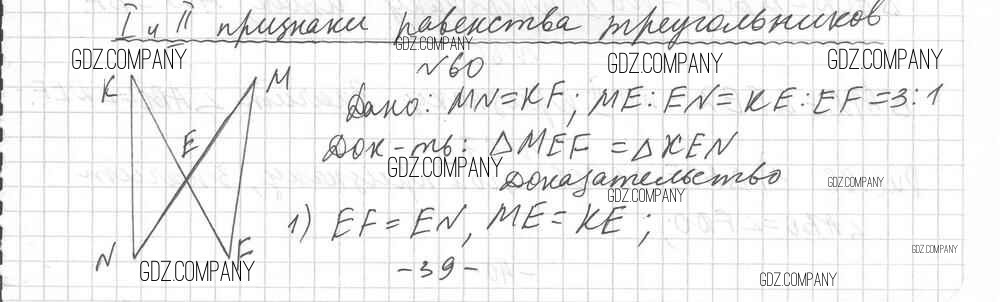 I и II признаки равенства треугольников
GDZ.COMPANY GDZ.COMPANY GDZ.COMPANY GDZ.COMPANY
№60
K M
Дано: MN=KF; ME:EN=KE:EF=3:1
E
Док-ть: △MEF=△KEN
GDZ.COMPANY
Доказательство
GDZ.COMPANY GDZ.COMPANY
1) EF=EN, ME=KE;
N F
GDZ.COMPANY
-39-
GDZ.COMPANY GDZ.COMPANY